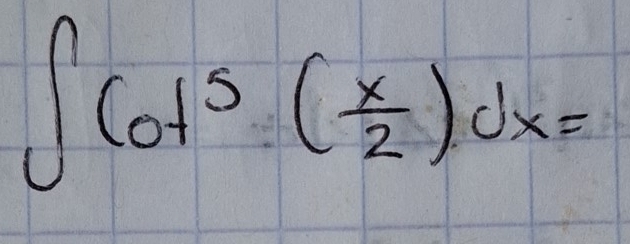 ∫ Cot⁵ (x/2) dx =